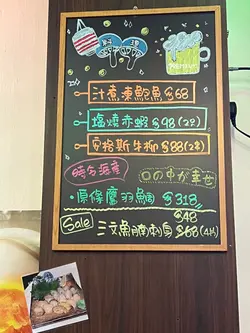 汁煮凍鮑魚 $68
塩燒赤蝦 $98(2串)
安格斯牛柳 $88(2串)
時令海産
口の中が幸せ
·原條鷹羽鯛 $318
$48
Sale 三文魚腩刺身 $68(4片)